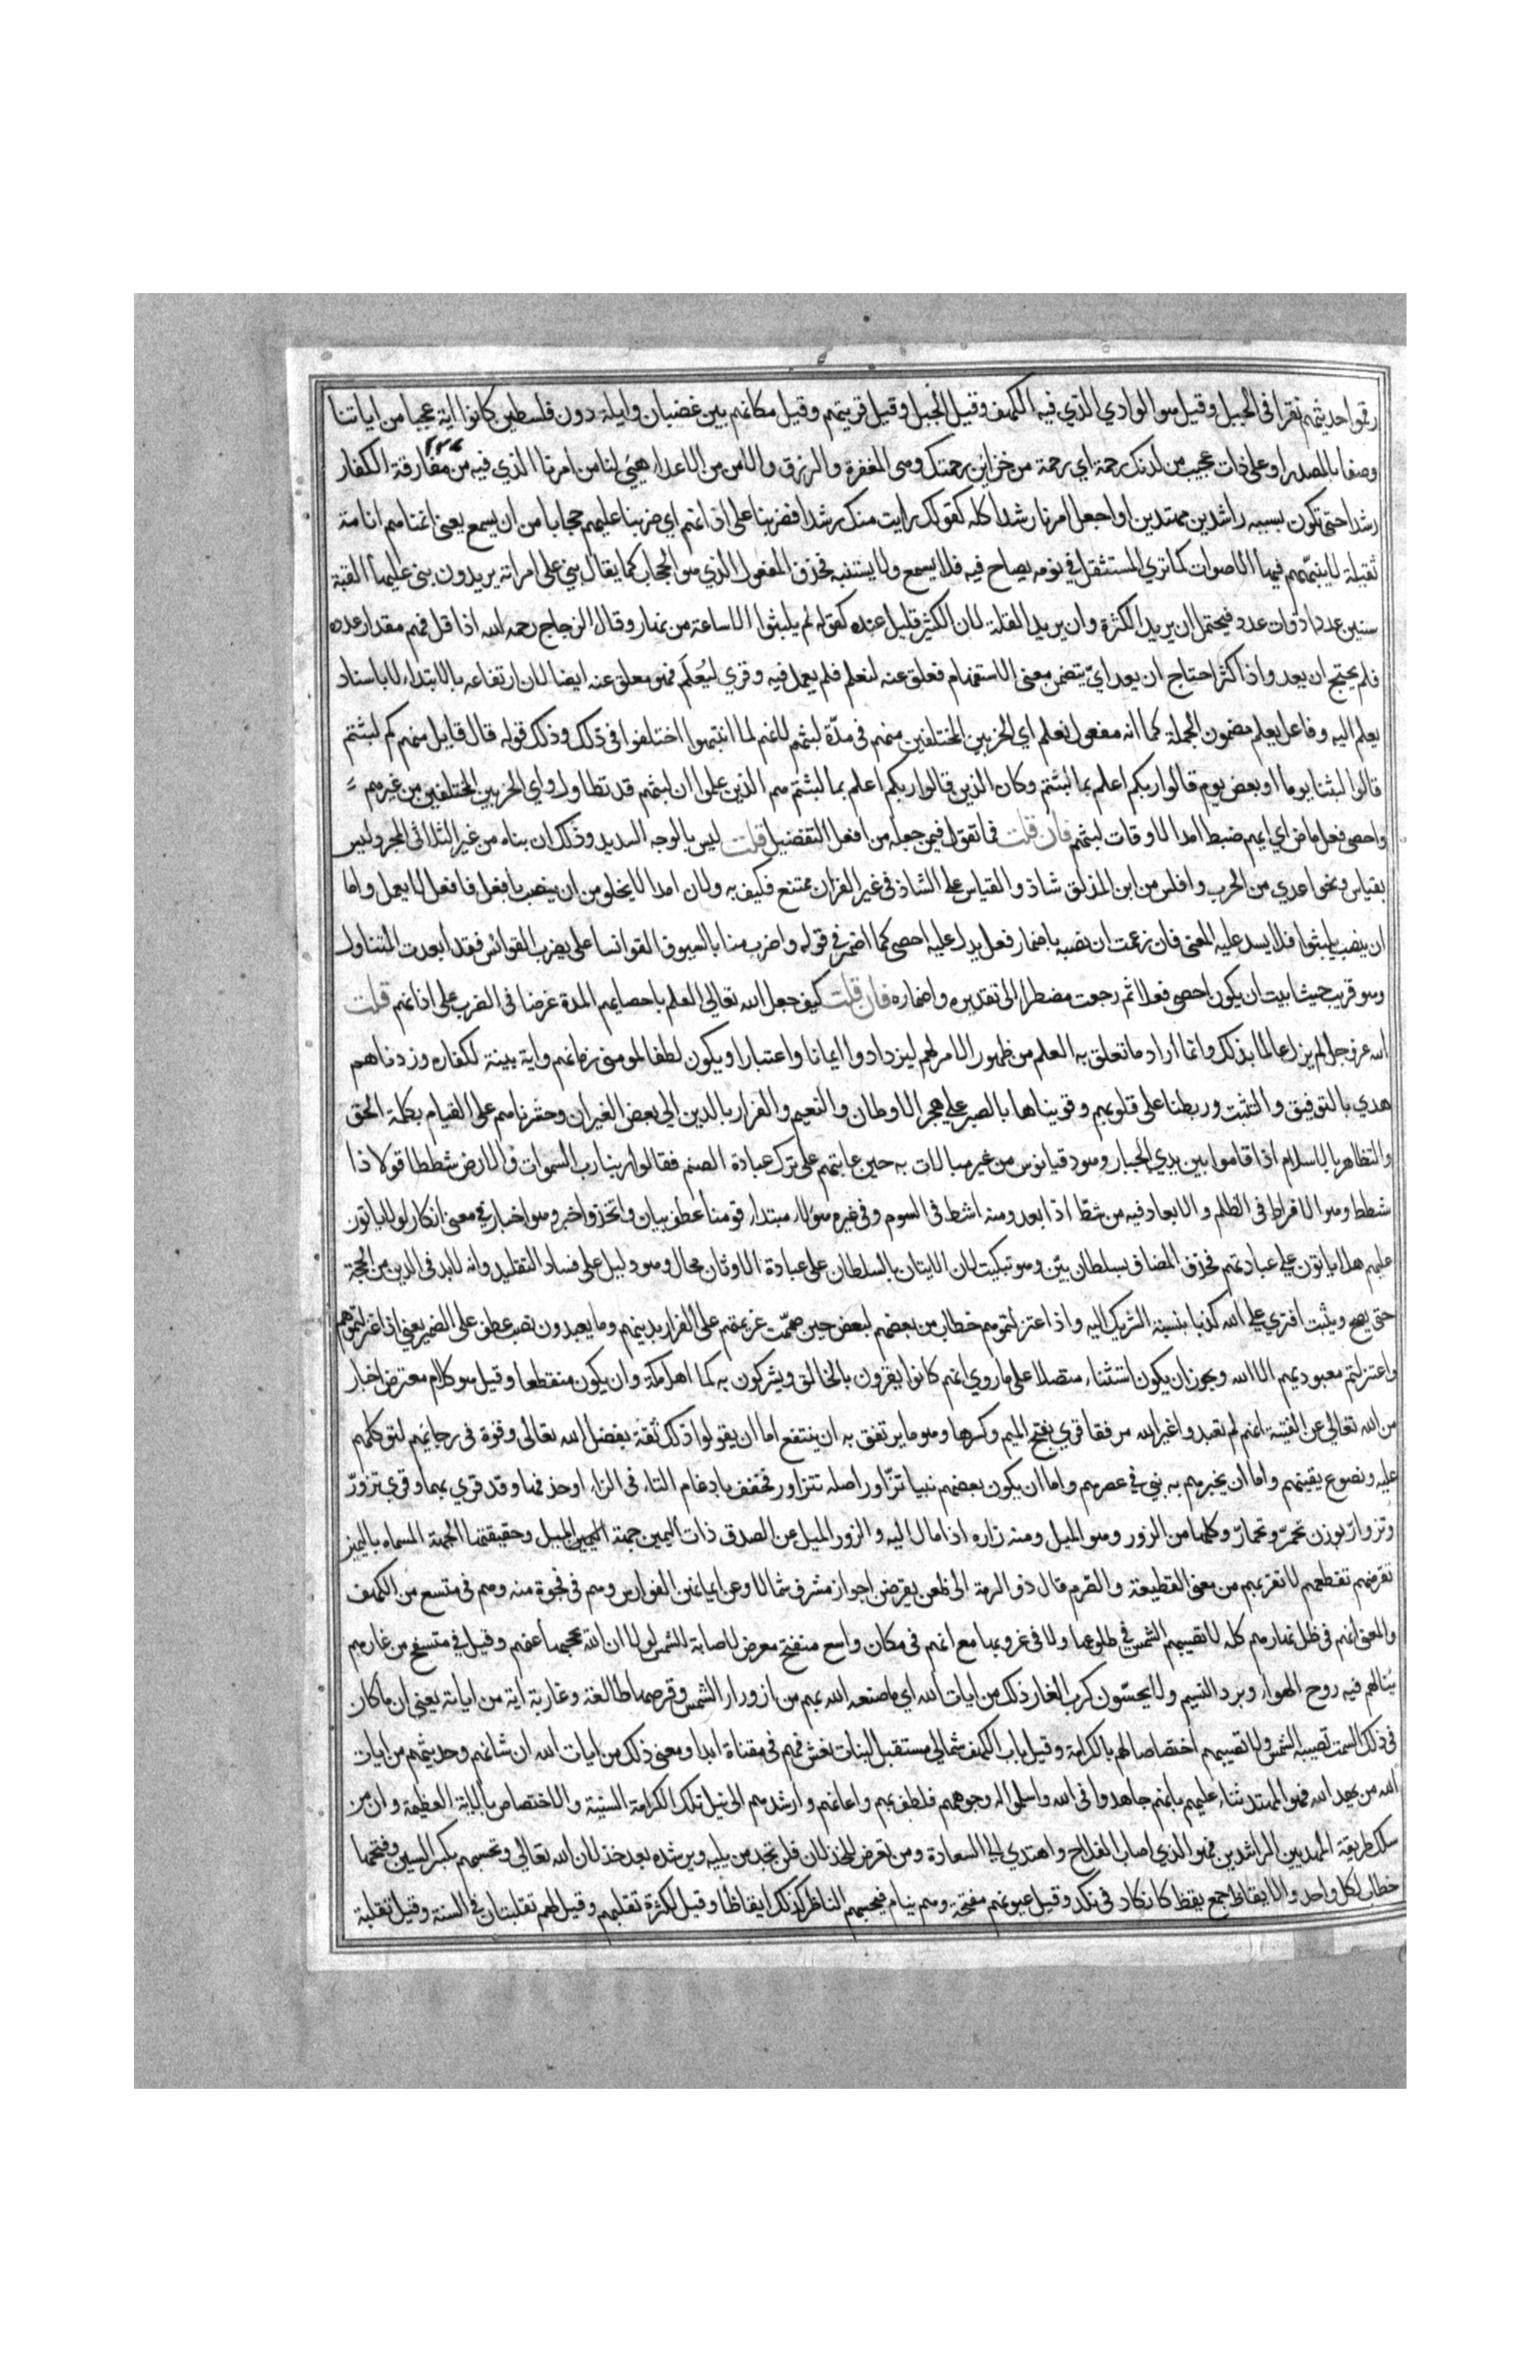 رقموا حديثهم نقرا فى الجبل وقيل هو الوادي الذي فيه الكهف وقيل الجبل وقيل قريتهم وقيل مكانهم بين غضبان وايلة دون فلسطين كانوا اية عجبا من اياتنا
وصفا بالمصدر او على ذات عجب من لدنك رحمة اي رحمة من خزاين رحمتك وهى المغفرة والرزق والامن من الاعداء هيئ لنا من امرنا الذي فيه من مفارقة الكفار
رشدا حتى نكون بسببه راشدين مهتدين او اجعل امرنا رشدا كله كقولك رايت منك رشدا فضربنا على اذانهم اي ضربنا عليهم حجابا من ان يسمع يعنى انمناهم انامة
ثقيلة لا ينبّههم فيها الاصوات كما تري المستثقل في نومه يصاح فيه فلا يسمع ولا يستنبه فحذف المفعول الذي هو الحجاب كما يقال بني على امراته يريدون بنى عليها القبة
سنين عددا ذوات عدد فيحتمل ان يريد الكثرة وان يريد القلة لان الكثير قليل عنده كقوله لم يلبثوا الا ساعة من نهار وقال الزجاج رحمه الله اذا قل فهم مقدار عدده
فلم يحتج ان يعد واذا كثر احتاج ان يعد ايّ يتضمن معنى الاستفهام فعلق عنه لنعلم فلم يعمل فيه وقري ليُعلَم فهو معلق عنه ايضا لان ارتفاعه بالابتداء لا باسناد
يعلم اليه وفاعل يعلم مضمون الجملة كما انه مفعول نعلم اي الحزبين المختلفين منهم فى مدّة لبثهم لانهم لما انتبهوا اختلفوا فى ذلك وذلك قوله قال قايل منهم كم لبثتم
قالوا لبثنا يوما او بعض يوم قالوا ربكم اعلم بما لبثتم وكان الذين قالوا ربكم اعلم بما لبثتم هم الذين علموا ان لبثهم قد تطاول او اي الحزبين المختلفين من غيرهم
واحصى فعل ماض اي ايهم ضبط امدا لاوقات لبثهم فان قلت فما تقول فيمن جعله من افعل التفضيل قلت ليس بالوجه السديد وذلك ان بناه من غير الثلاثى المجرد ليس
بقياس ونحو اعدي من الجرب وافلس من ابن المذلق شاذ والقياس على الشاذ فى غير القران ممتنع فكيف به ولان امدا لا يخلو من ان ينصب بافعل فافعل لا يعمل واما
ان ينصب بلبثوا فلا يسد عليه المعنى فان زعمت ان نصبه باضمار فعل يدل عليه احصى كما اضمر في قوله واضرب منا بالسيوف القوانسا على يضرب القوانس فقد ابعدت المتناول
وهو قريب حيث ابيت ان يكون احصى فعلا ثم رجعت مضطرا الى تقديره واضماره فان قلت كيف جعل الله تعالى العلم باحصايهم المدة غرضا فى الضرب على اذانهم قلت
الله عز وجل لم يزل عالما بذلك وانما اراد ما تعلق به العلم من ظهور الامر لهم ليزدادوا ايمانا واعتبارا ويكون لطفا لمومنى زمانهم واية بينة لكفاره وزدناهم
هدي بالتوفيق والتثبت وربطنا على قلوبهم وقويناها بالصبر على هجر الاوطان والنعيم والفرار بالدين الى بعض الغيران وحسّرناهم على القيام بكلمة الحق
والتظاهر بالاسلام اذ قاموا بين يدي الجبار وهو دقيانوس من غير مبالات به حين عاتبهم على ترك عبادة الصنم فقالوا ربنا رب السموات والارض شططا قولا ذا
شطط وهو الافراط فى الظلم والابعاد فيه من شطّ اذا ابعد ومنه اشط فى السوم وفى غيره هؤلاء مبتدا وقومنا عطف بيان واتخذوا خبر وهو اخبار فى معنى انكار لولا ياتون
عليهم هلا ياتون على عبادتهم فحذف المضاف بسلطان بيّن وهو تبكيت لان الاتيان بالسلطان على عبادة الاوثان محال وهو دليل على فساد التقليد وانه لابد فى الدين من الحجة
حتى يصح ويثبت افتري على الله كذبا بنسبة الشريك اليه واذ اعتزلتموهم خطاب من بعضهم لبعض حين صممّت عزيمتهم على الفرار بدينهم وما يعبدون نصب عطف على الضمير يعني اذ اعتزلتموهم
واعتزلتم معبوديهم الا الله ويجوز ان يكون استثناء متصلا على ما روي انهم كانوا يقرون بالخالق ويشركون به كما اهل مكة وان يكون منقطعا وقيل هو كلام معترض اخبار
من الله تعالى عن الفتية انهم لم يعبدوا غير الله مرفقا قري بفتح الميم وكسرها وهو ما يرتفق به ان ينتفع اما ان يقولوا ذلك ثقة بفضل الله تعالى وقوة فى رجائهم لتوكلهم
عليه ونصوع يقينهم واما ان يخبرهم به نبي في عصرهم واما ان يكون بعضهم نبيا تزّاور اصله تتزاور فخفف بادغام التاء فى الزاء او حذفها وقد قري بهما وقري تزورّ
وتزوارّ بوزن تحمرّ وتحمارّ وكلها من الزور وهو الميل ومنه زاره اذا مال اليه والزور الميل عن الصدق ذات اليمين جهة اليمين وحقيقتها الجهة المسماه باليمين
تقرضهم تقطعهم لا تقربهم من معنى القطيعة والصّرم قال ذو الرمة الى ظعن يقرضن اجواز مشرف شمالا وعن ايمانهن الفوارس وهم فى فجوة منه وهم فى متسع من الكهف
والمعنى انهم فى ظل نهارهم كله لا تصيبهم الشمس في طلوعها ولا فى غروبها مع انهم فى مكان واسع منفتح معرض لاصابة الشمس لولا ان الله يحجبها عنهم وقيل في متسع من غارهم
ينالهم فيه روح الهواء وبرد النسيم ولا يحسّون كرب الغار ذلك من ايات الله اي ما صنعه الله بهم من ازورار الشمس وقرضها طالعة وغاربة اية من اياته يعنى ان ما كان
فى ذلك السمت تصيبه الشمس ولا تصيبهم اختصاصا لهم بالكرامة وقيل باب الكهف شمالي مستقبل لبنات نعش فهم فى مقناة ابدا ومعنى ذلك من ايات الله ان شانهم وحديثهم من ايات
الله من يهد الله فهو المهتد ثناء عليهم بانهم جاهدوا فى الله واسلموا له وجوههم فلطف بهم واعانهم وارشدهم الى نيل تلك الكرامة السنية والاختصاص بالاية العظيمة وان من
سلك طريقة المهديين الراشدين فهو الذي اصاب الفلاح واهتدي الى السعادة ومن تعرض للخذلان فلن تجد من يليه ويرشده بعد خذلان الله تعالى وتحسبهم بكسر السين وفتحها
خطاب لكل واحد والايقاظ جمع يقظ كانكاد فى نكد وقيل عيونهم مفتحة وهم ينام فيحسبهم الناظر كذلك ايقاظا وقيل لكثرة تقلبهم وقيل لهم تقلبتان فى السنة وقيل تقلبة